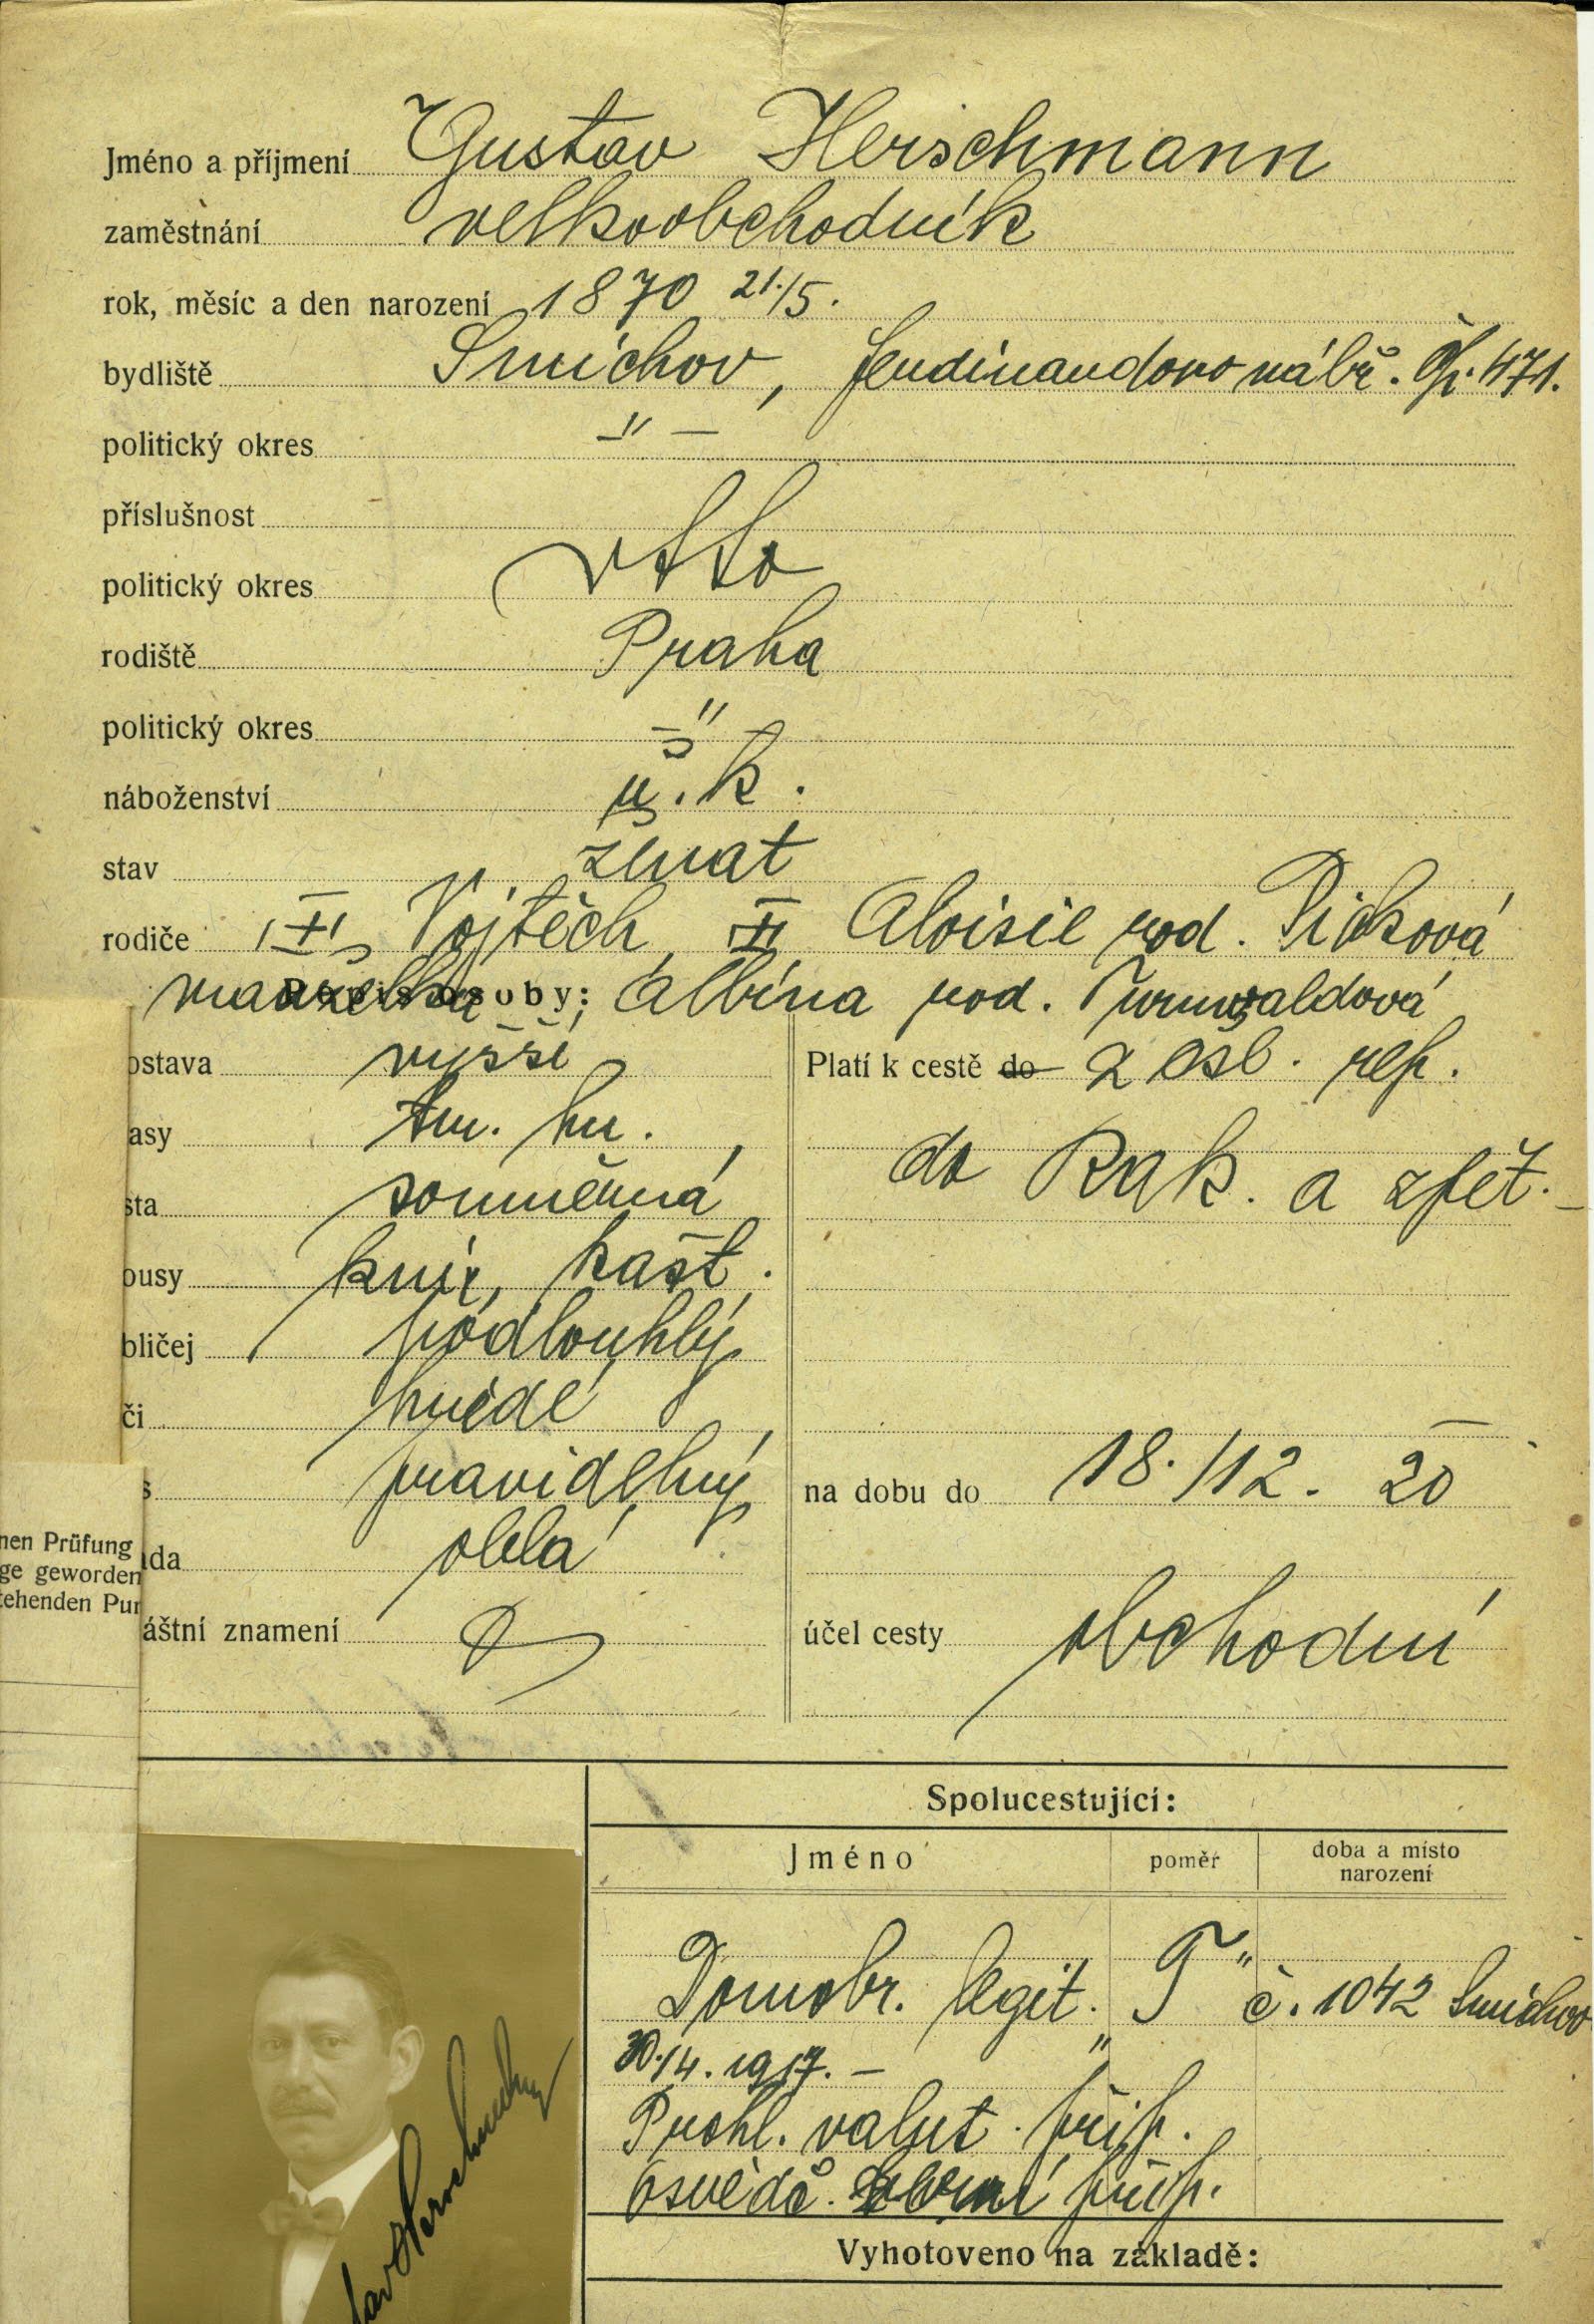 Jméno a příjmení Gustav Herschmann
zaměstnání velkoobchodník
rok, měsíc a den narození 1870 21./5.
bydliště Smíchov, Ferdinandovo nábř. čp. 471.
politický okres –"–
příslušnost
politický okres
rodiště Praha
politický okres –"–
náboženství
stav ženat
rodiče Vojtěch, Aloisie rod. Picková
manželka Albína rod. Turnwaldová
Popis osoby:
ostava vyšší
asy tm. hn.
sta souměrná
ousy knír, kašt.
bličej podlouhlý
či hnědé
s pravidelný
ada oblá
áštní znamení
Platí k cestě do z čsl. rep.
do Rak. a zpět. –
na dobu do 18./12. 20
účel cesty obchodní
nen Prüfung
ge geworden
tehenden Pur
Spolucestující:
Jméno poměr doba a místo narození
Domobr. legit. č. 1042 Smíchov
30./4. 1917. –
Prohl. valut. přip.
Osvědč. přip.
Vyhotoveno na základě: